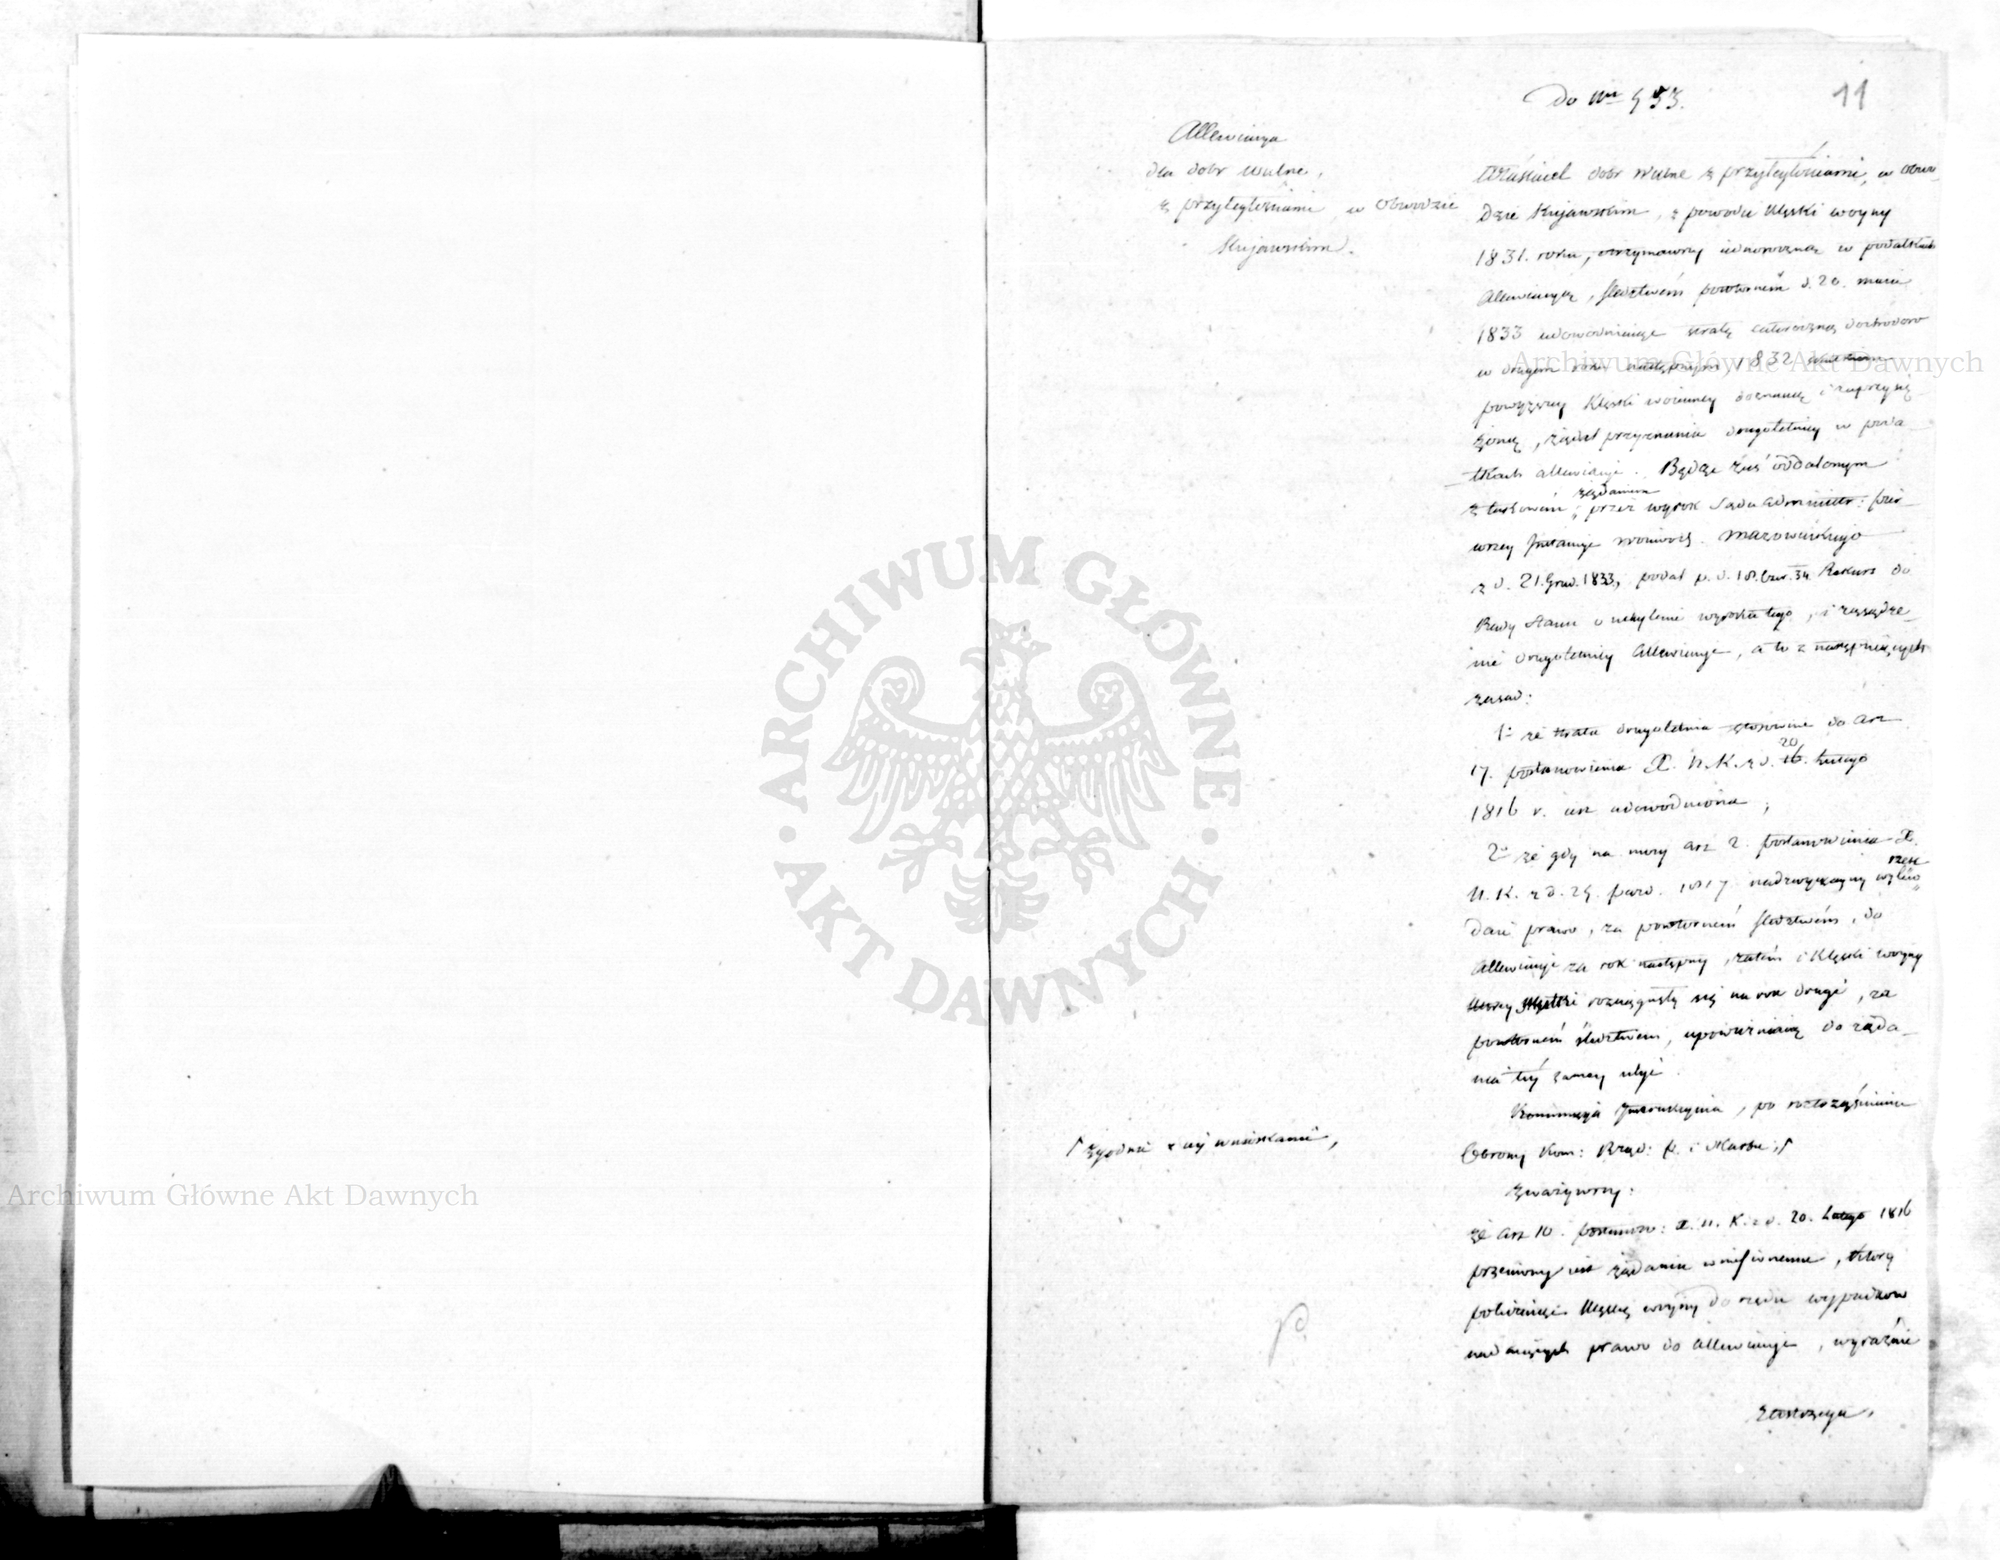 Do Nru 533.
11
Allewiacya
dla dobr Wulne,
z przyległościami w Obwodzie
Kujawskim.
Właściciel dobr Wulne z przyległościami, w Obwo-
dzie Kujawskim, z powodu klęski woyny
1831. roku, otrzymawszy iednoroczną w podatkach
Allewiacyą, śledztwem powtórnem d. 20. maia
1833 udowodniaiąc stratę całoroczną dochodow
w drugim roku następnym 1832
powyższey klęski woienney doznaną i zaprzysię-
żoną, żądał przyznania drugoletniey w poda-
tkach allewiacyi. Będąc zaś oddalonym
z takowem żądaniem przez wyrok Sądu Administr: pier-
wszey Instancyi Woiewodz. Mazowieckiego
z d. 21. Grud. 1833, podał p. d. 18. Czer. 34. Rekurs do
Rady Stanu o uchylenie wyroku tego, i zasądze-
nie drugoletniey Allewiacyi, a to z następuiących
zasad:
1o że strata drugoletnia stosownie do Art
17. postanowienia X. N. K. z d. 20 16. Lutego
1816 r. iest udowodniona;
2o że gdy na mocy Art 2. postanowienia X.
N. K. z d. 25. paźd. 1817. nadzwyczayny wylew rzek
daie prawo, za powtórnem śledztwem, do
Allewiacyi za rok następny, zatem i klęski woyny
rozciągnęły się na rok drugi, za
powtórnem śledztwem, upoważniaią do żąda-
nia tey samey ulgi.
Kommissya Instrukcyina, po roztrząśnieniu
Obrony Kom: Rząd: P. i Skarbu;
zgodnie z iey wnioskami,
Zważywszy:
że Art 10. postanow: X. N. K. z d. 20. Lutego 1816
przeciwny iest żądaniu wniesionemu, który
policzaiąc klęskę woyny do rzędu wypadkow
nadaiących prawo do allewiacyi, wyraźnie
zastrzega,